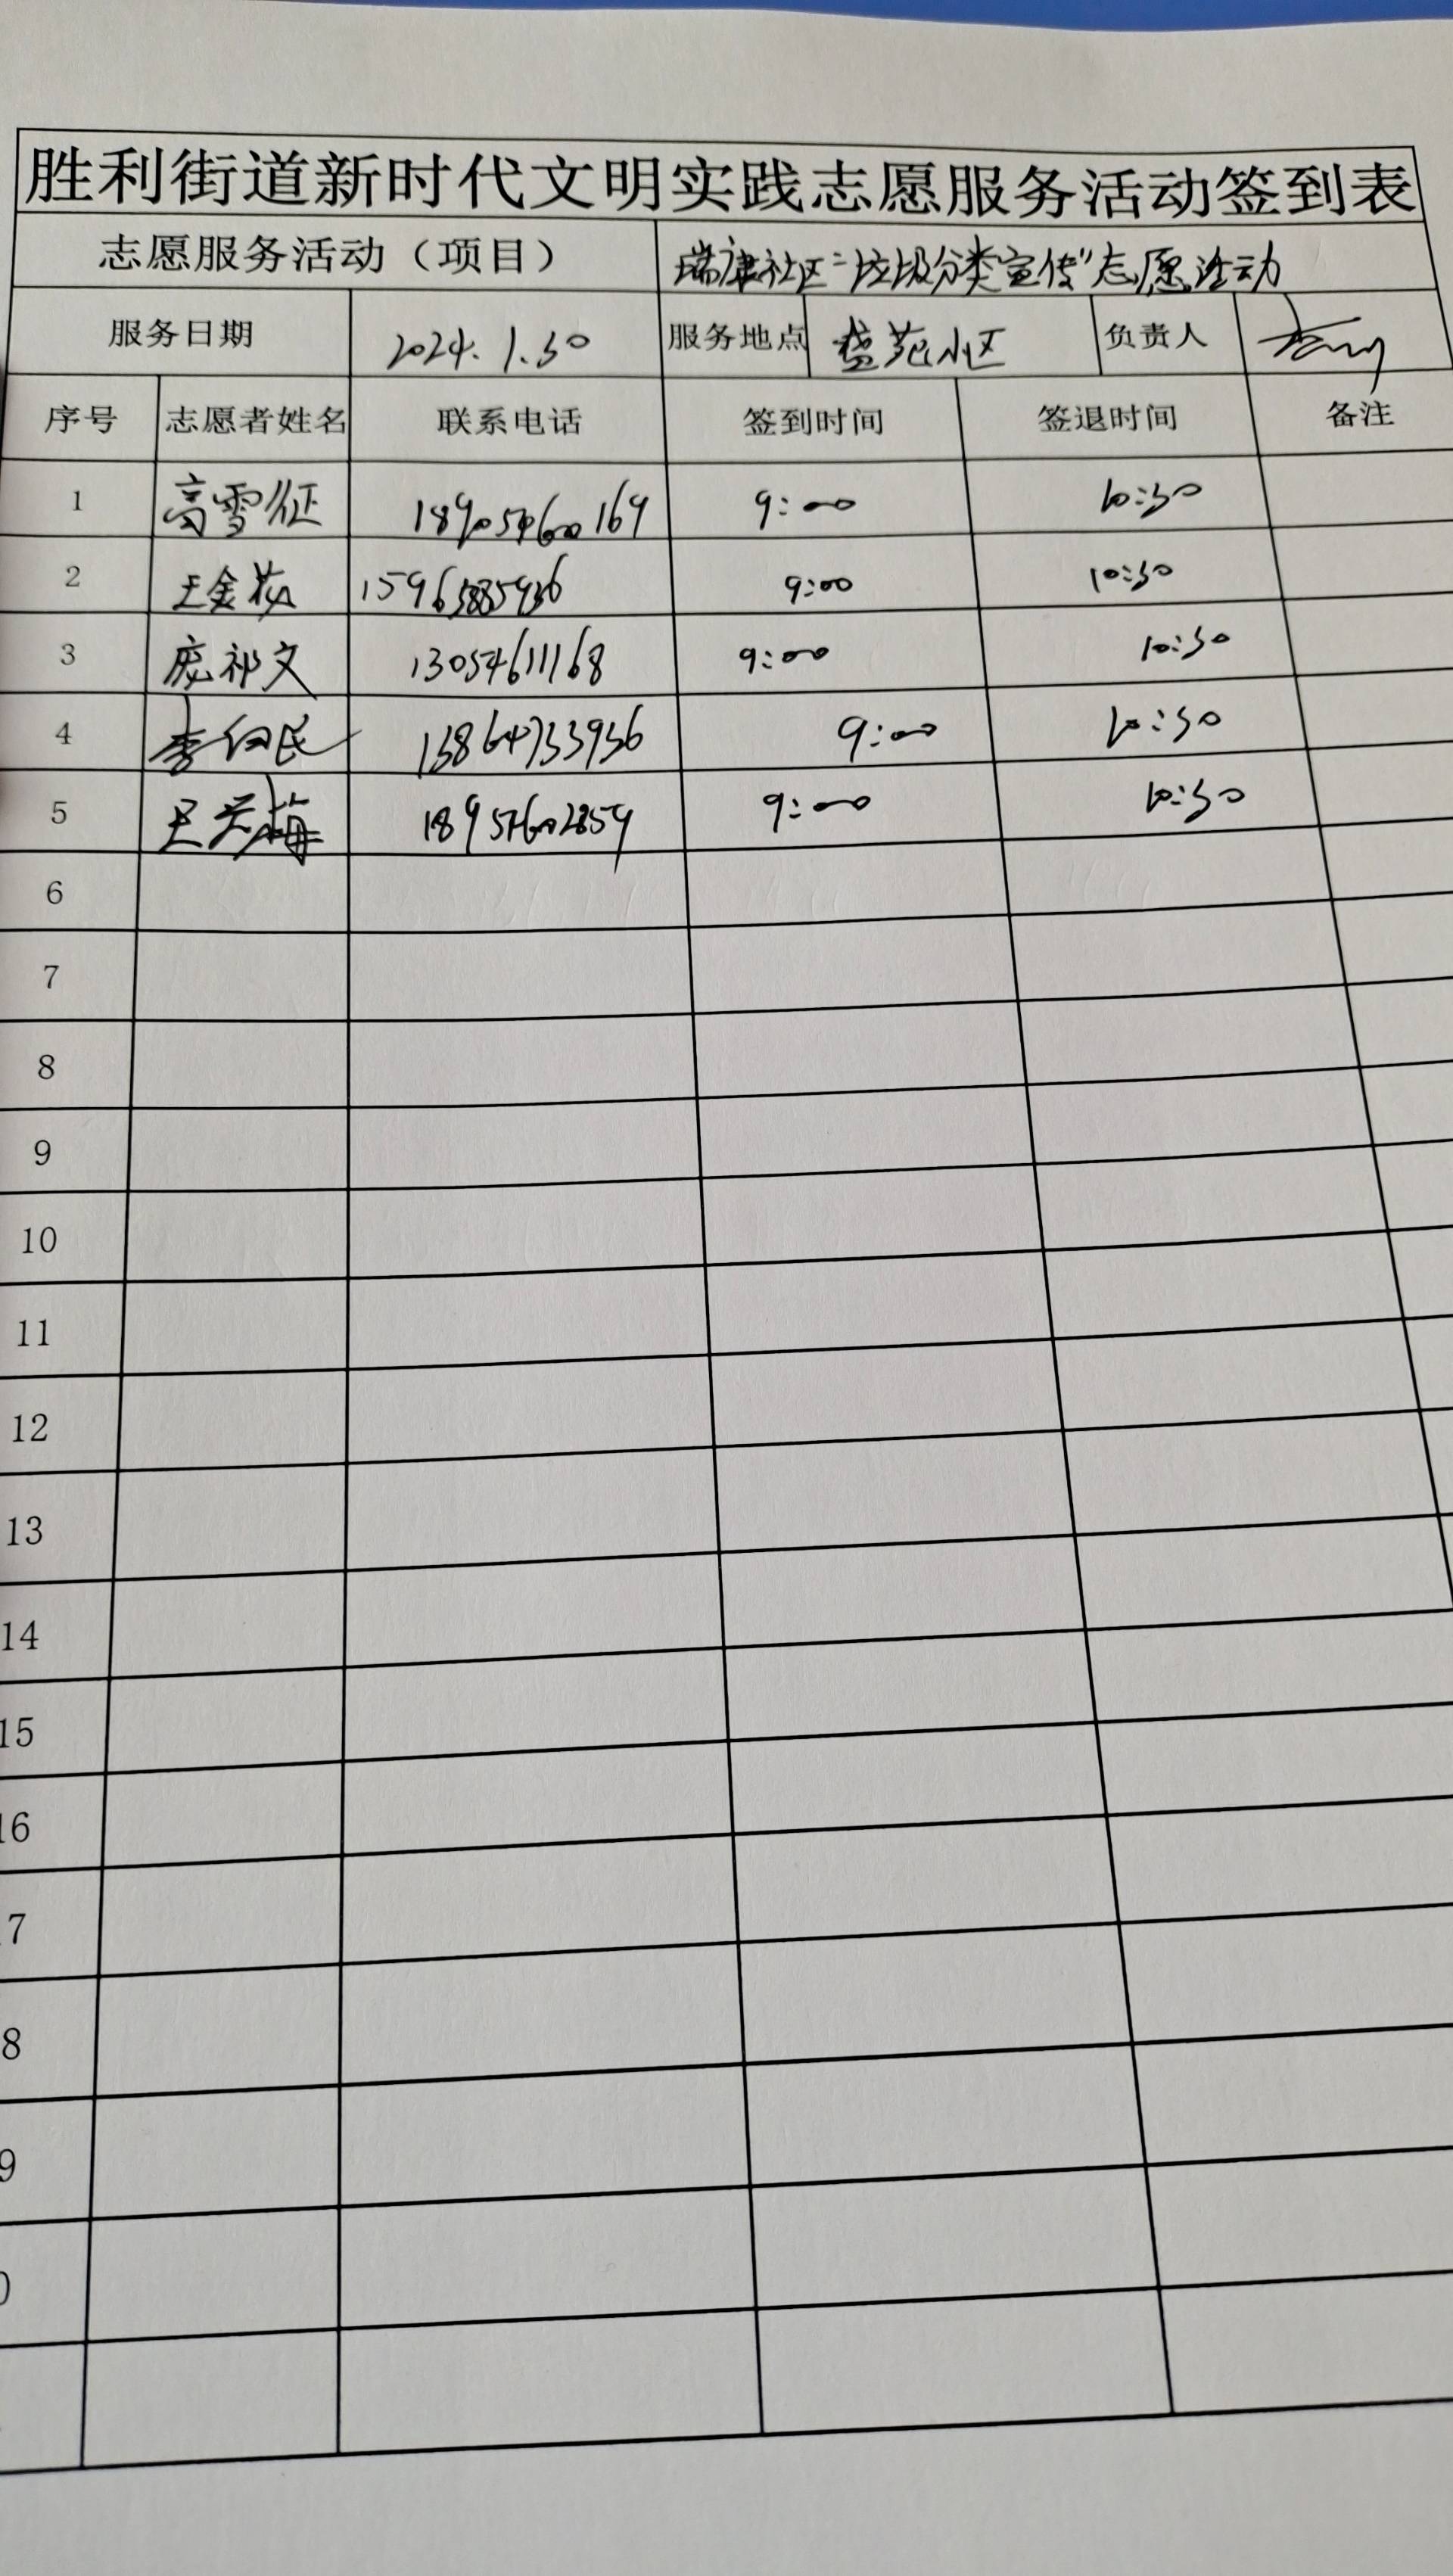 胜利街道新时代文明实践志愿服务活动签到表
志愿服务活动（项目） 瑞康社区"垃圾分类宣传"志愿活动
服务日期 2024.1.30 服务地点 盛苑小区 负责人
序号 志愿者姓名 联系电话 签到时间 签退时间 备注
1 高雪征 18905460169 9:00 10:30
2 王金 9:00 10:30
3 庞祁文 13054611168 9:00 10:30
4 李向民 13864733936 9:00 10:30
5 王 梅 9:00 10:30
6
7
8
9
10
11
12
13
14
15
16
7
8
9
0